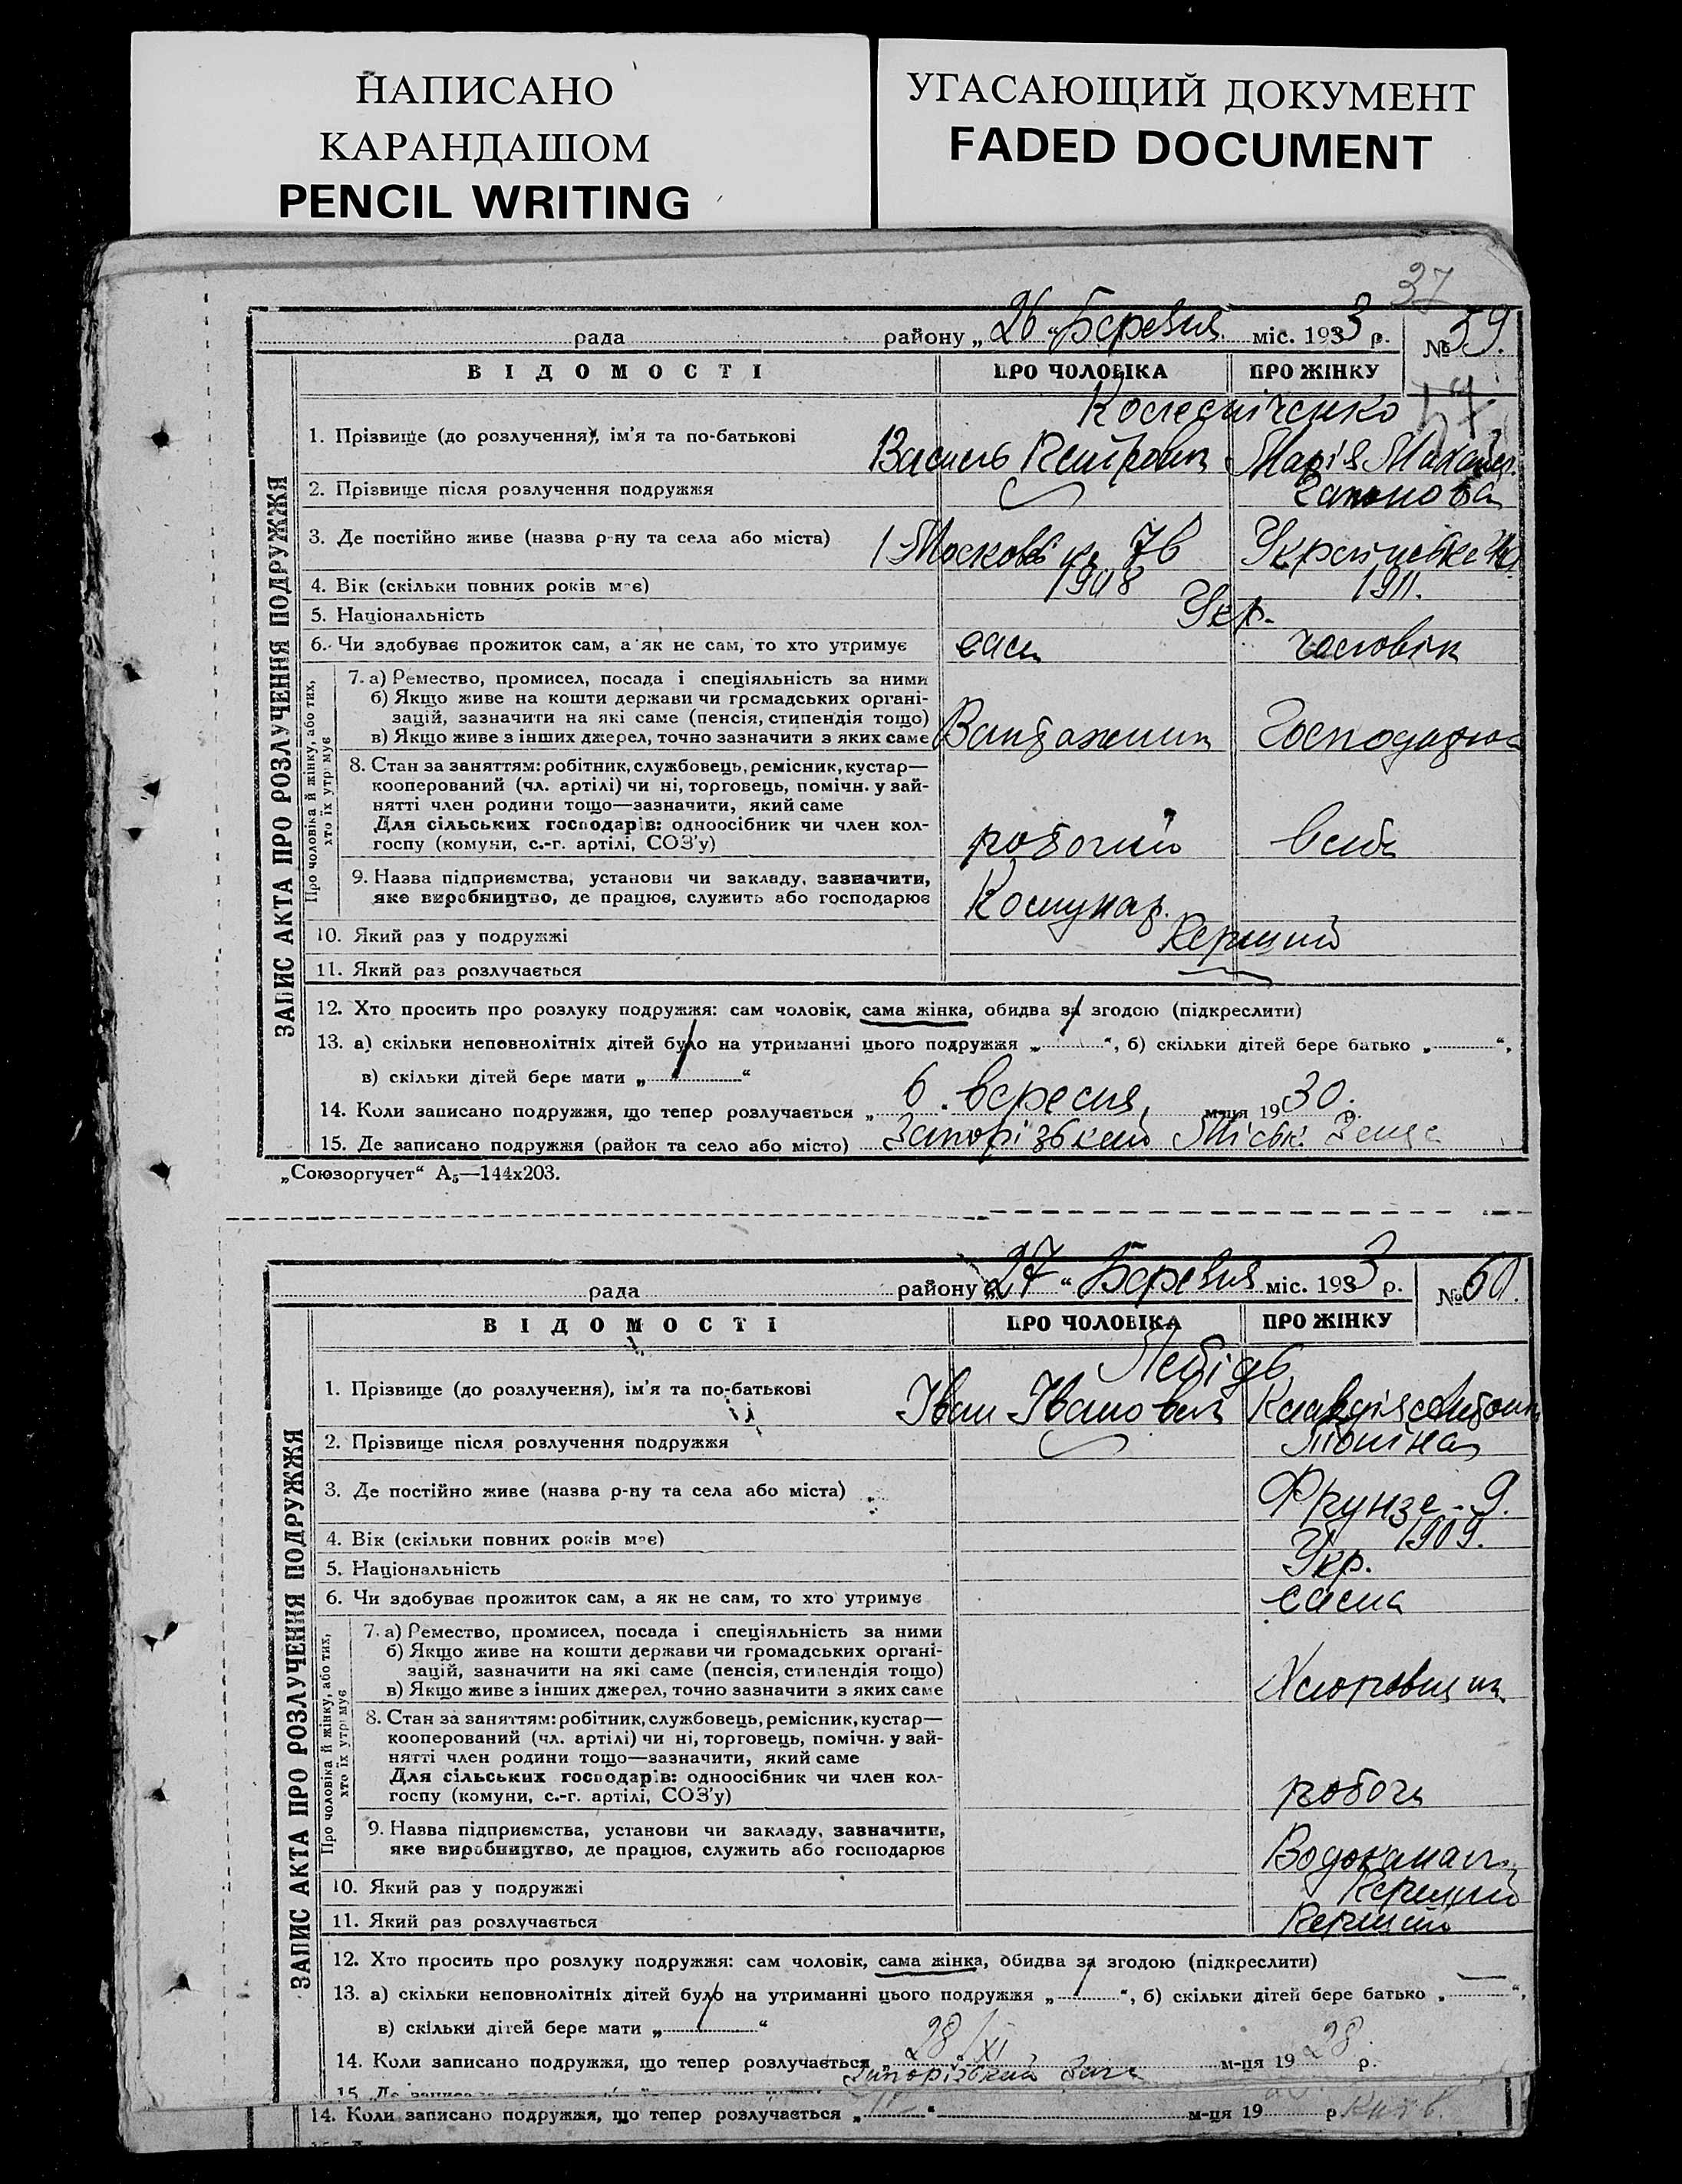 НАПИСАНО
КАРАНДАШОМ
PENCIL WRITING
УГАСАЮЩИЙ ДОКУМЕНТ
FADED DOCUMENT
37
рада району „26“ Березня міс. 1933 р. № 59.
ВІДОМОСТІ ПРО ЧОЛОВІКА ПРО ЖІНКУ
ЗАПИС АКТА ПРО РОЗЛУЧЕННЯ ПОДРУЖЖЯ
Колесніченко
1. Прізвище (до розлучення), ім'я та по-батькові Василь Петрович Марія
2. Прізвище після розлучення подружжя Гапонова
3. Де постійно живе (назва р-ну та села або міста) 7в
4. Вік (скільки повних років має) 1908 1911.
5. Національність Укр.
6. Чи здобуває прожиток сам, а як не сам, то хто утримує сам чоловік
Про чоловіка й жінку, або тих, хто їх утримує
7. а) Ремество, промисел, посада і спеціяльність за ними
б) Якщо живе на кошти держави чи громадських органі-
зацій, зазначити на які саме (пенсія, стипендія тощо)
в) Якщо живе з інших джерел, точно зазначити з яких саме Вантажник
8. Стан за заняттям: робітник, службовець, ремісник, кустар—
кооперований (чл. артілі) чи ні, торговець, помічн. у зай-
нятті член родини тощо—зазначити, який саме
Для сільських господарів: одноосібник чи член кол-
госпу (комуни, с.-г. артілі, СОЗ'у) робочий
9. Назва підприємства, установи чи закладу, зазначити,
яке виробництво, де працює, служить або господарює Комунар.
10. Який раз у подружжі Перший
11. Який раз розлучається
12. Хто просить про розлуку подружжя: сам чоловік, сама жінка, обидва за згодою (підкреслити)
13. а) скільки неповнолітніх дітей було на утриманні цього подружжя „ “, б) скільки дітей бере батько „ “,
в) скільки дітей бере мати „ “
14. Коли записано подружжя, що тепер розлучається „ 6 . вересня, м-ця 1930. р.
15. Де записано подружжя (район та село або місто) Запорізький Міськ. Загс
„Союзоргучет“ А₅—144х203.
рада району „27“ Березня міс. 1933 р. № 60.
ВІДОМОСТІ ПРО ЧОЛОВІКА ПРО ЖІНКУ
ЗАПИС АКТА ПРО РОЗЛУЧЕННЯ ПОДРУЖЖЯ
Лебідь
1. Прізвище (до розлучення), ім'я та по-батькові Іван Іванович Клавдія
2. Прізвище після розлучення подружжя
3. Де постійно живе (назва р-ну та села або міста) Фрунзе - 9.
4. Вік (скільки повних років має) 1909.
5. Національність Укр.
6. Чи здобуває прожиток сам, а як не сам, то хто утримує сама
Про чоловіка й жінку, або тих, хто їх утримує
7. а) Ремество, промисел, посада і спеціяльність за ними
б) Якщо живе на кошти держави чи громадських органі-
зацій, зазначити на які саме (пенсія, стипендія тощо)
в) Якщо живе з інших джерел, точно зазначити з яких саме
8. Стан за заняттям: робітник, службовець, ремісник, кустар—
кооперований (чл. артілі) чи ні, торговець, помічн. у зай-
нятті член родини тощо—зазначити, який саме
Для сільських господарів: одноосібник чи член кол-
госпу (комуни, с.-г. артілі, СОЗ'у) робоча
9. Назва підприємства, установи чи закладу, зазначити,
яке виробництво, де працює, служить або господарює Водоканал
10. Який раз у подружжі Перший
11. Який раз розлучається Перший
12. Хто просить про розлуку подружжя: сам чоловік, сама жінка, обидва за згодою (підкреслити)
13. а) скільки неповнолітніх дітей було на утриманні цього подружжя „ “, б) скільки дітей бере батько „ “,
в) скільки дітей бере мати „ “
14. Коли записано подружжя, що тепер розлучається „ 28/XI м-ця 1928 р.
Запорізький Загс
14. Коли записано подружжя, що тепер розлучається „ “ м-ця 19 р